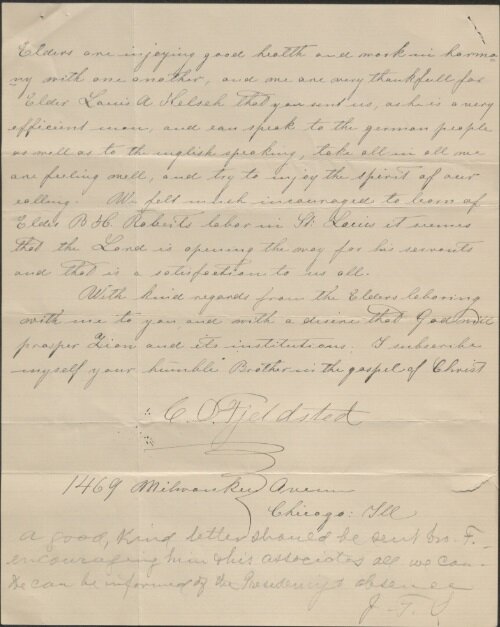 Elders are injoying good health and work in harmo-
ny with one another, and we are very thankfull for
Elder Louis A Kelsch that you sent us, as he is a very
efficient man, and can speak to the german people
as well as to the inglish speaking, take all in all we
are feeling well, and try to injoy the spirit of our
calling. We felt much incouraged to learn of
Elder B H. Roberts labor in St. Louis it seemes
that the Lord is opening the way for his servants
and that is a satisfaction to us all.
With kind regards from the Elders laboring
with me to you and with a desire that God will
prosper Zion and its institutions. I subscribe
myself your humble Brother in the gospel of Christ
C. O. Fjeldsted
1469 Milwaukee Avenu
Chicago: Ill
A good, kind letter should be sent bro. F.
encouraging him & his associates all we can.
He can be informed of the Presidency's absence
J. F. S.